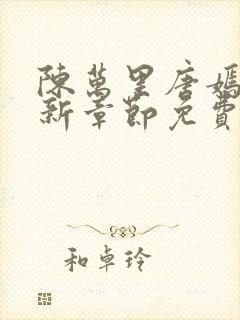 陳萬里唐嫣
新章節免費
和卓玲